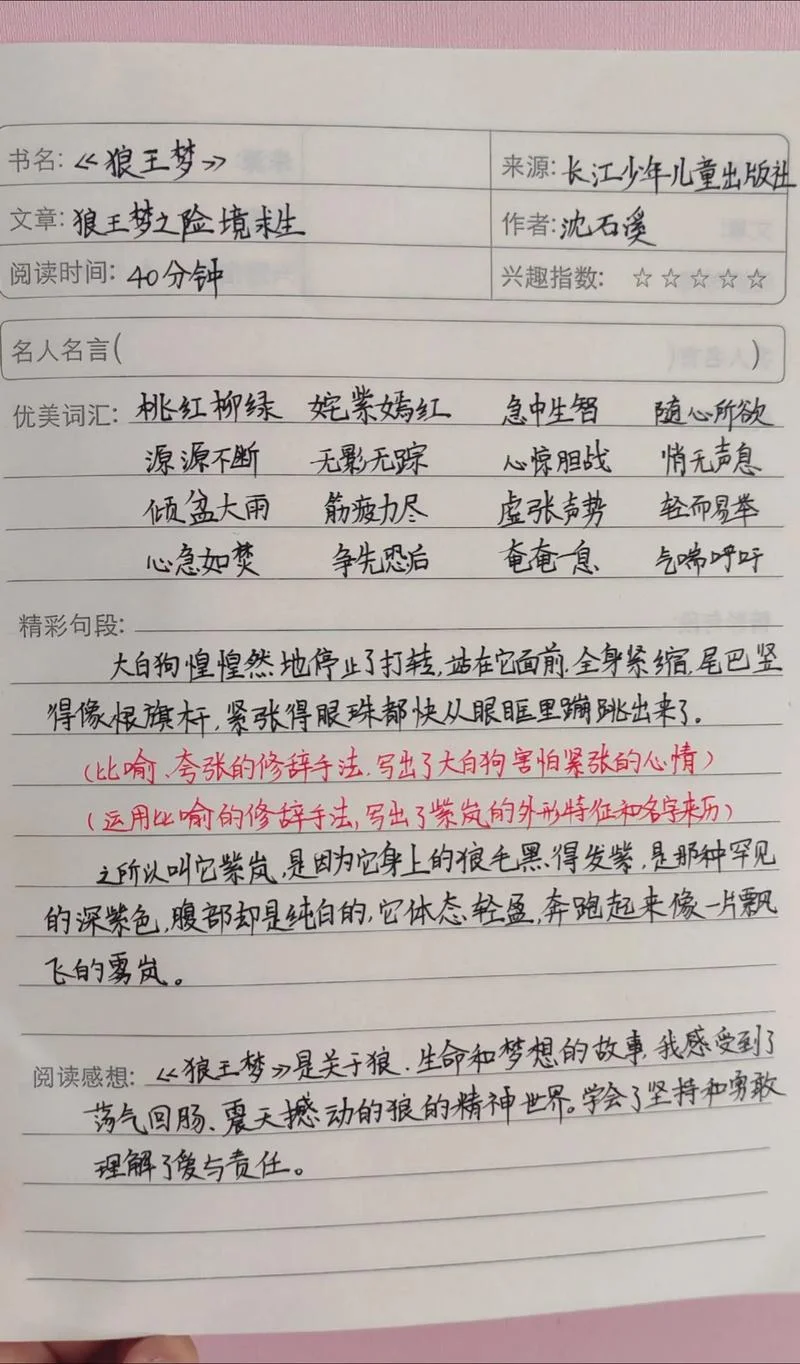 书名:《狼王梦》 来源:长江少年儿童出版社
文章:狼王梦之险境求生 作者:沈石溪
阅读时间:40分钟 兴趣指数:☆☆☆☆☆
名人名言( )
优美词汇:桃红柳绿 姹紫嫣红 急中生智 随心所欲
源源不断 无影无踪 心惊胆战 悄无声息
倾盆大雨 筋疲力尽 虚张声势 轻而易举
心急如焚 争先恐后 奄奄一息 气喘呼吁
精彩句段:
大白狗惶惶然地停止了打转,站在它面前.全身紧缩,尾巴竖
得像根旗杆,紧张得眼珠都快从眼眶里蹦跳出来了.
(比喻、夸张的修辞手法.写出了大白狗害怕紧张的心情)
(运用比喻的修辞手法,写出了紫岚的外形特征和名字来历)
之所以叫它紫岚,是因为它身上的狼毛黑得发紫,是那种罕见
的深紫色,腹部却是纯白的,它体态轻盈,奔跑起来像一片飘
飞的雾岚。
阅读感想:《狼王梦》是关于狼.生命和梦想的故事,我感受到了
荡气回肠、震天撼动的狼的精神世界。学会了坚持和勇敢
理解了爱与责任。